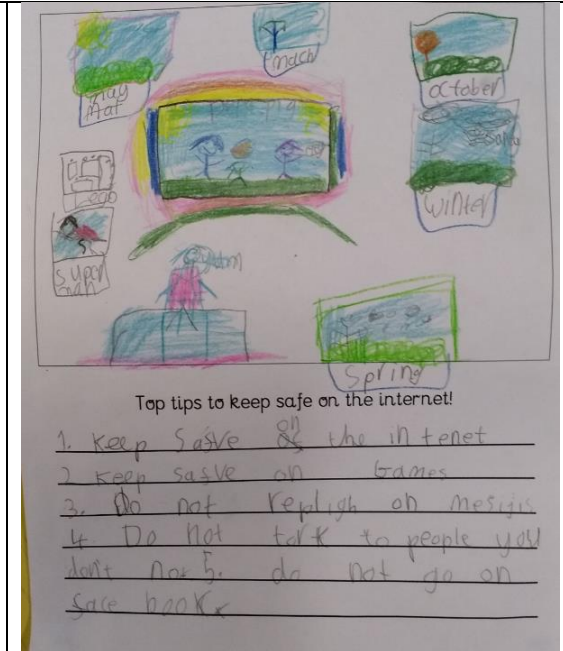 march
October
winter
Lego
Super
man
Spring
Top tips to keep safe on the internet!
1. Keep Safve on the in tenet
2 Keep safve on Games
3. Do not repligh on mesijis
4. Do not tork to people you
don't nor 5. do not go on
face book